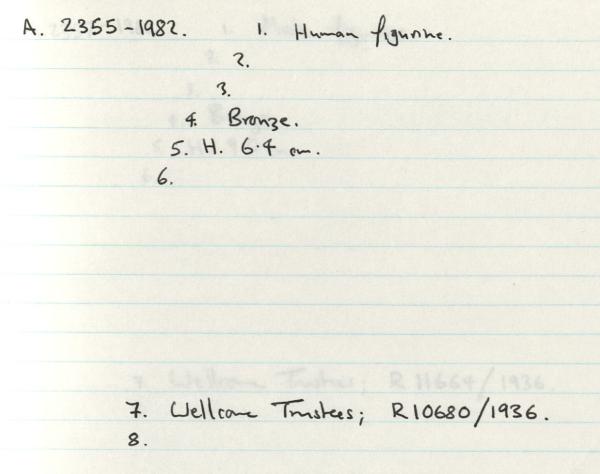 A. 2355-1982. 1. Human figurine.
2.
3.
4. Bronze.
5. H. 6.4 cm.
6.
7. Wellcome Trustees; R11664/1936.
7. Wellcome Trustees; R10680/1936.
8.